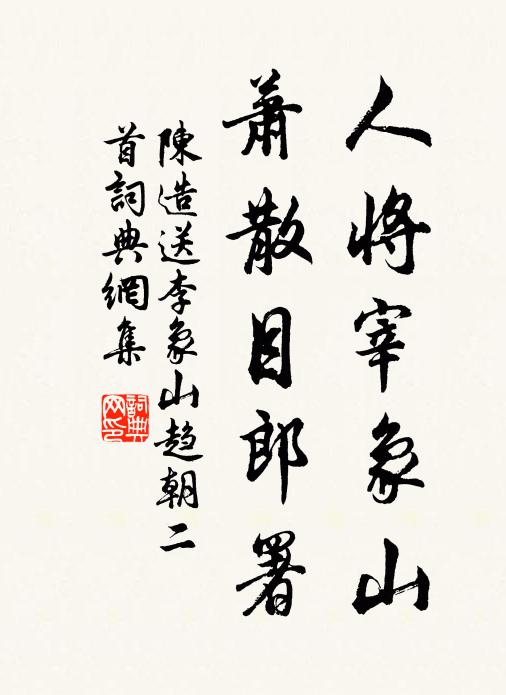 人將宰象山
蕭散目郎署
陳造送李象山趨朝二
首詞典網集
詞典網印